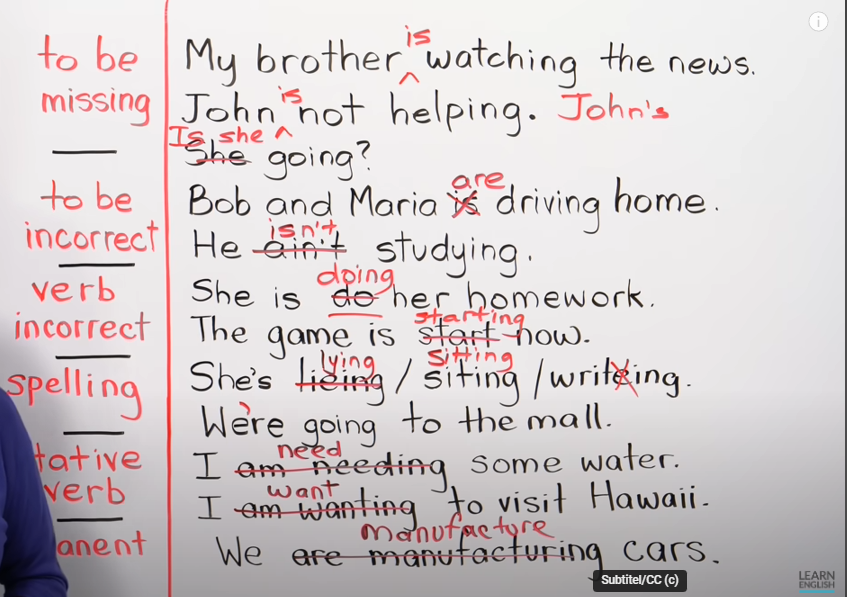 to be missing
is
My brother ^ watching the news.
is
John ^ not helping. John's
Is she
She going?
to be incorrect
are
Bob and Maria is driving home.
isn't
He ain't studying.
verb incorrect
doing
She is do her homework.
starting
The game is start now.
spelling
lying sitting
She's lieing / siting / writeing.
We're going to the mall.
tative verb
need
I am needing some water.
want
I am wanting to visit Hawaii.
anent
manufacture
We are manufacturing cars.
Subtitel/CC (c)
LEARN
ENGLISH